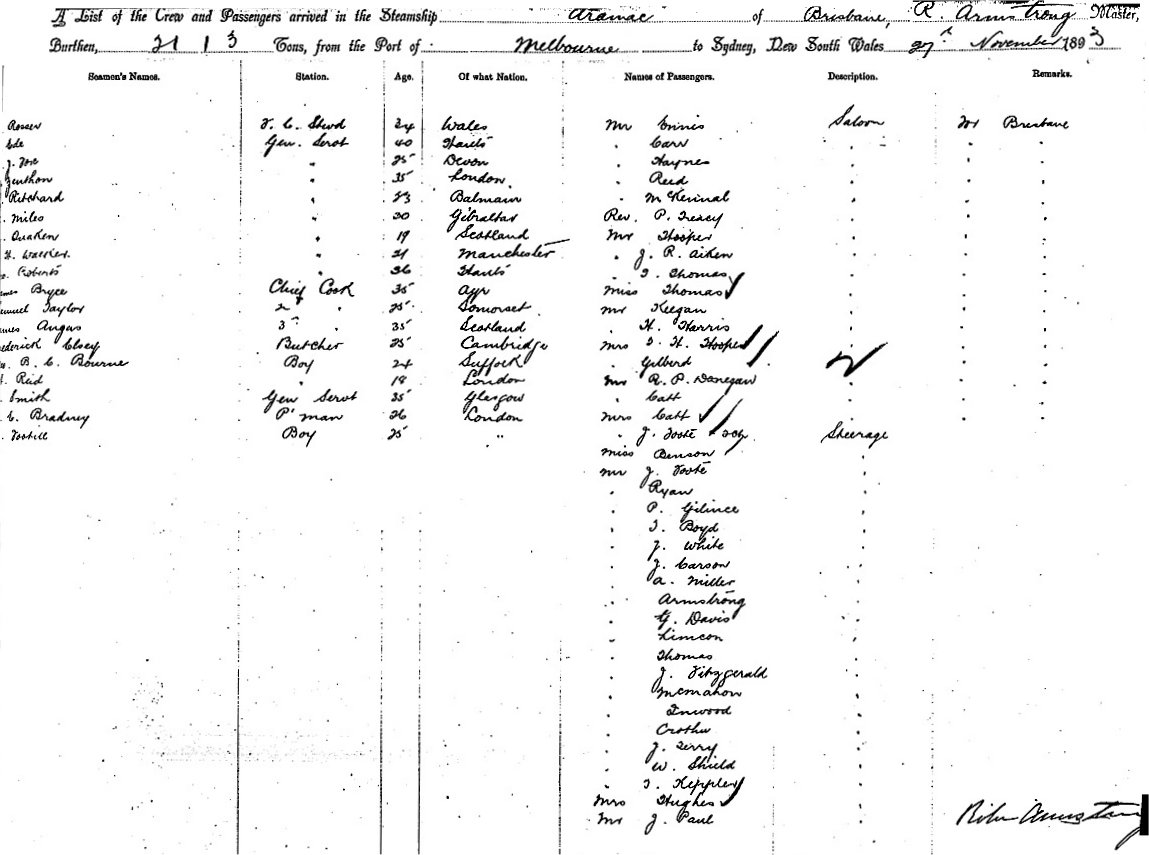 A List of the Crew and Passengers arrived in the Steamship Aramac of Brisbane, R. Armstrong Master,
Burthen, 2113 Tons, from the Port of Melbourne to Sydney, New South Wales 27th November 1893
Seamen's Names. Station. Age. Of what Nation. Names of Passengers. Description. Remarks.
Rosser F. C. Stwd 24 Wales Mr Ennis Saloon For Brisbane
Ede Gen. Servt 40 Hants . Carr . . .
" 25 Devon . Haynes . . .
" 35 London . Reid . . .
Pritchard " 23 Balmain . . . .
Miles " 30 Gibraltar Rev. P. Treacy . . .
" 19 Scotland Mr Hooper . . .
H. Walker " 21 Manchester . J. R. Aiken . . .
Roberts " 36 Hants . T. Thomas . . .
Bryce Chief Cook 35 Ayr Miss Thomas . . .
Taylor 2nd " 25 Somerset Mr Keegan . . .
Angus 3rd " 35 Scotland . H. Harris . . .
Elsey Butcher 25 Cambridge Mrs T. H. Hooper . . .
B. C. Bourne Boy 24 Suffolk . Gilberd . . .
Reid " 18 London Mr R. P. Danegan . . .
Smith Gen Servt 35 Glasgow . Catt . . .
C. Bradney P'man 26 London Mrs Catt . . .
Boy 25 " . J. Foote Steerage
Miss Benson .
Mr J. Foote .
. Ryan .
. P. .
. T. Boyd .
. J. White .
. J. Carson .
. A. Miller .
. Armstrong .
. G. Davis .
. Limcon .
. Thomas .
. J. Fitzgerald .
. McMahon .
. Inwood .
. .
. J. Terry .
. W. Shield .
. T. Keppler .
Mrs Hughes .
Mr J. Paul .
Armstrong